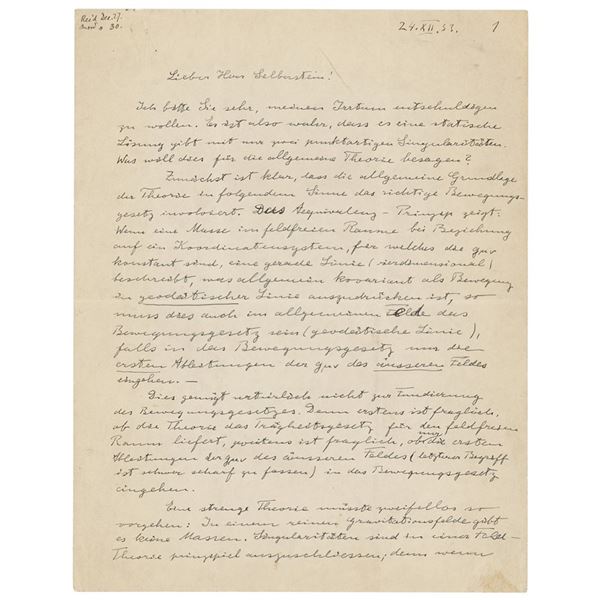 Rec'd Dec. 27.
30.
24.XII.33. 1
Lieber Herr Silberstein!
Ich bitte Sie sehr, meinen Irrtum entschuldigen
zu wollen. Es ist also wahr, dass es eine statische
Lösung gibt mit nur zwei punktartigen Singularitäten.
Was will dies für die allgemeine Theorie besagen?
Zunächst ist klar, dass die allgemeine Grundlage
der Theorie in folgendem Sinne das richtige Bewegungs-
gesetz involviert. Das Aequivalenz-Prinzip zeigt:
Wenn eine Masse im feldfreien Raume bei Beziehung
auf ein Koordinatensystem, für welches die gμν
konstant sind, eine gerade Linie (vierdimensional)
beschreibt, was allgemein kovariant als Bewegung
in geodätischer Linie auszudrücken ist, so
muss dies auch im allgemeinen Felde das
Bewegungsgesetz sein (geodätische Linie),
falls in das Bewegungsgesetz nur die
ersten Ableitungen der gμν des äusseren Feldes
eingehen. —
Dies genügt natürlich nicht zur Fundierung
des Bewegungsgesetzes. Denn erstens ist fraglich,
ob die Theorie das Trägheitsgesetz für den feldfreien
Raum liefert, zweitens ist fraglich, ob nur die ersten
Ableitungen der gμν des äusseren Feldes (letzterer Begriff
ist schwer scharf zu fassen) in das Bewegungsgesetz
eingehen.
Eine strenge Theorie müsste zweifellos so
vorgehen: In einem reinen Gravitationsfelde gibt
es keine Massen. Singularitäten sind in einer Feld-
Theorie prinzipiell auszuschliessen; denn wenn